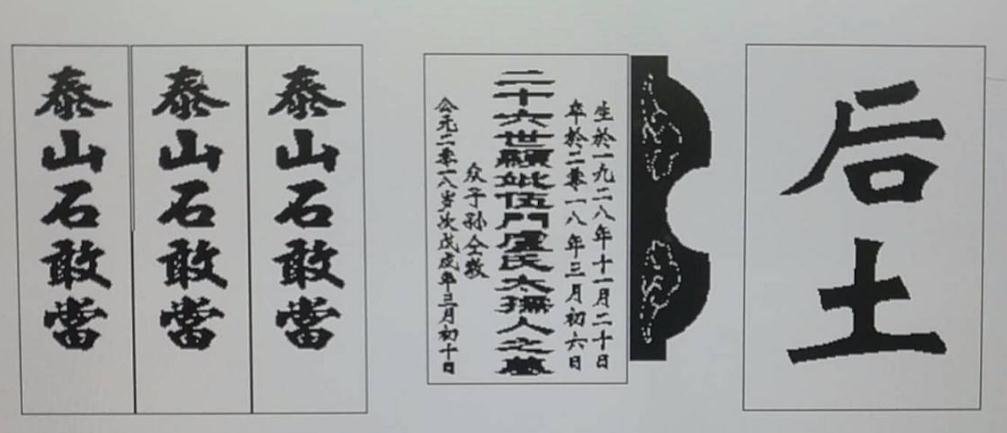 泰山石敢當
泰山石敢當
泰山石敢當
生於一九二八年十一月二十日
卒於二零一八年三月初六日
二十六世顯妣伍門盧氏太孺人之墓
众子孙仝敬
公元二零一八岁次戊戌年三月初十日
后土